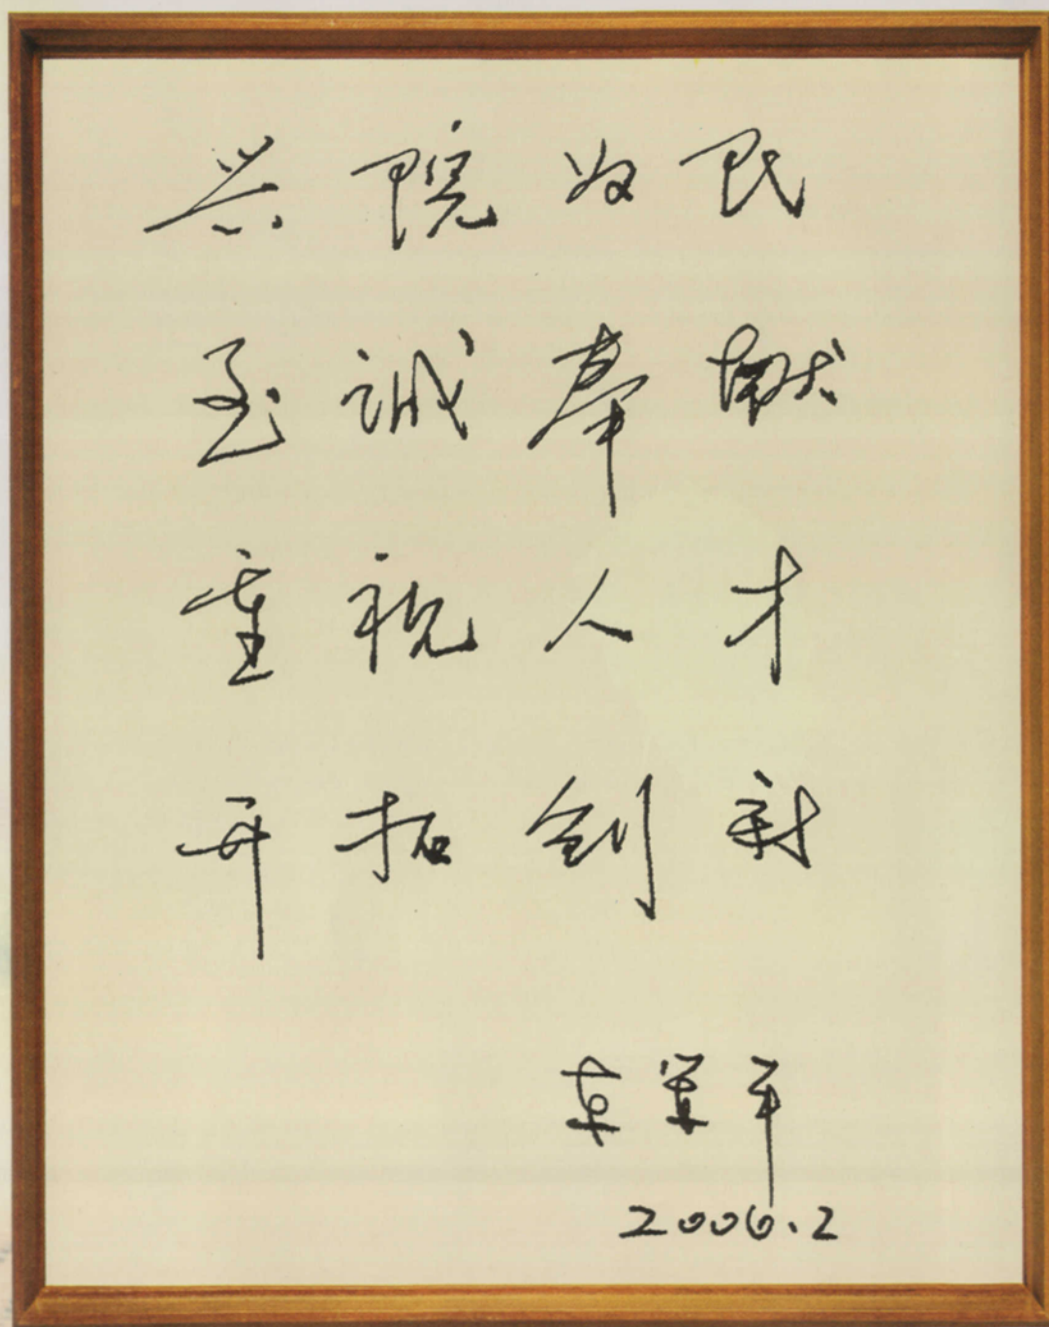 兴院为民
至诚奉献
重视人才
开拓创新
2006.2